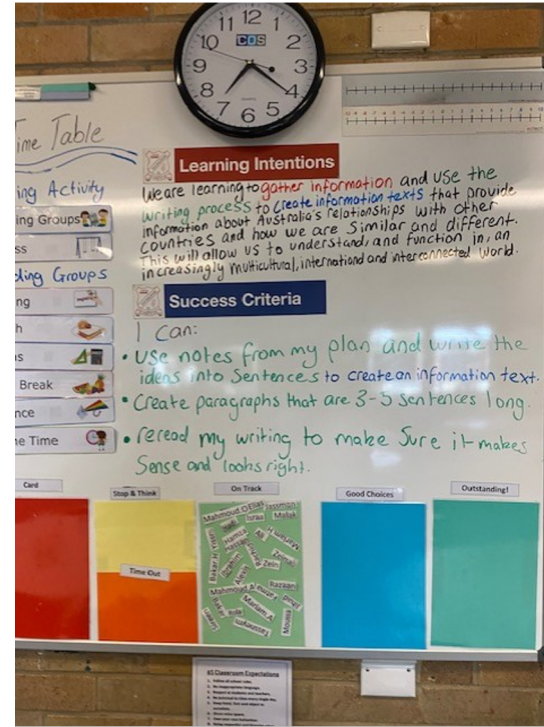 12
11
1
10
COS
2
9
3
8
4
7
5
6
QUARTZ
ime Table
ing Activity
ing Groups
ss
ding Groups
ng
h
Break
nce
e Time
Learning Intentions
We are learning to gather information and use the
writing process to create information texts that provide
information about Australia's relationships with other
countries and how we are similar and different.
This will allow us to understand, and function in, an
increasingly multicultural, international and interconnected world.
Success Criteria
I can:
• use notes from my plan and write the
ideas into sentences to create an information text.
• Create paragraphs that are 3-5 sentences long.
• reread my writing to make sure it makes
sense and looks right.
Card
Stop & Think
On Track
Good Choices
Outstanding!
Time Out
Mahmoud.O
Elias
Israa
Malak
Hamza
Hassan
Ali
Zein
Bakar.H
Zeinab
Razaan
Mahmoud
Mariam.A
Bakar
Moussa
6S Classroom Expectations
1. Follow all school rules.
2. No inappropriate language.